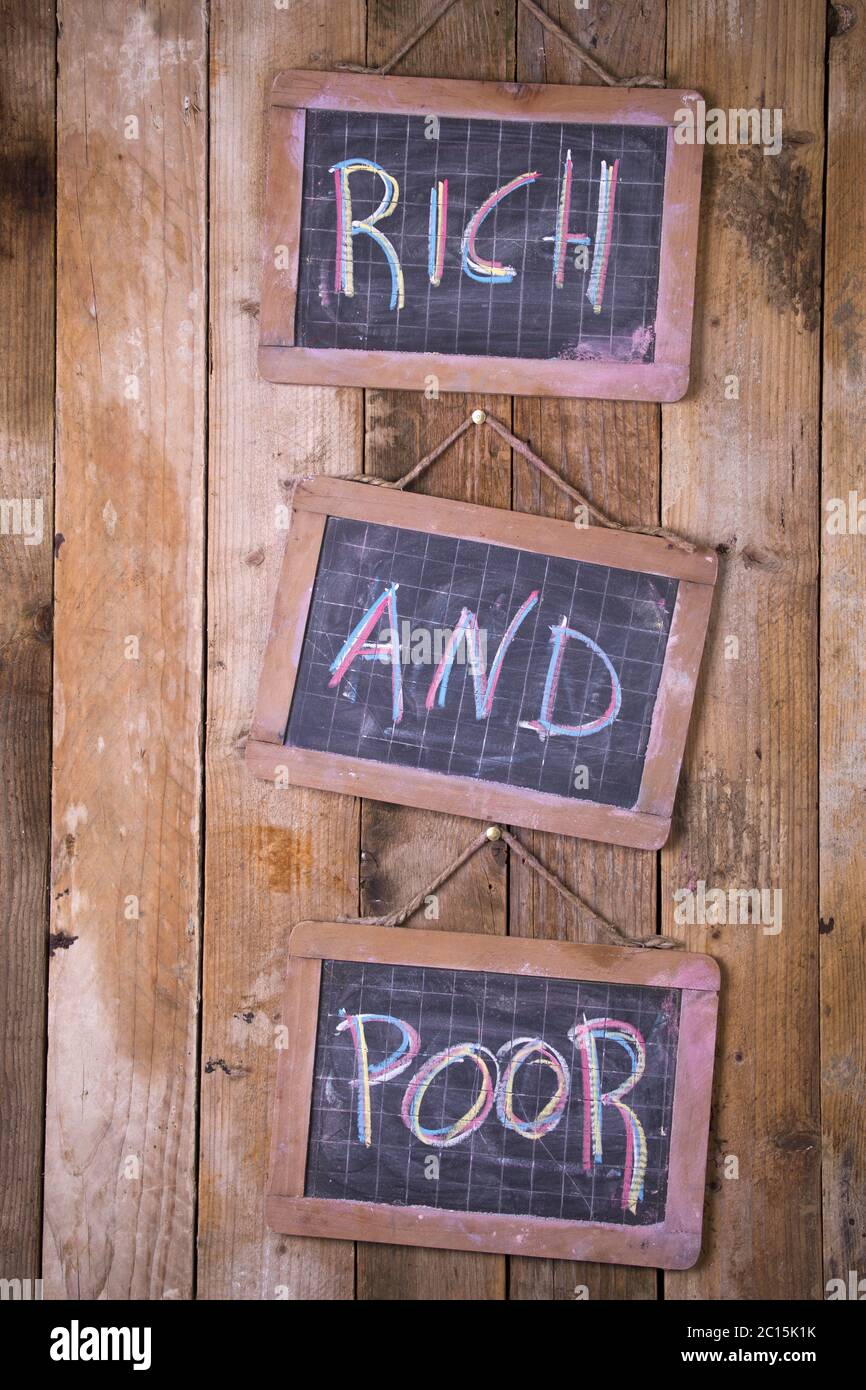 RICH
AND
POOR
alamy
Image ID: 2C15K1K
www.alamy.com